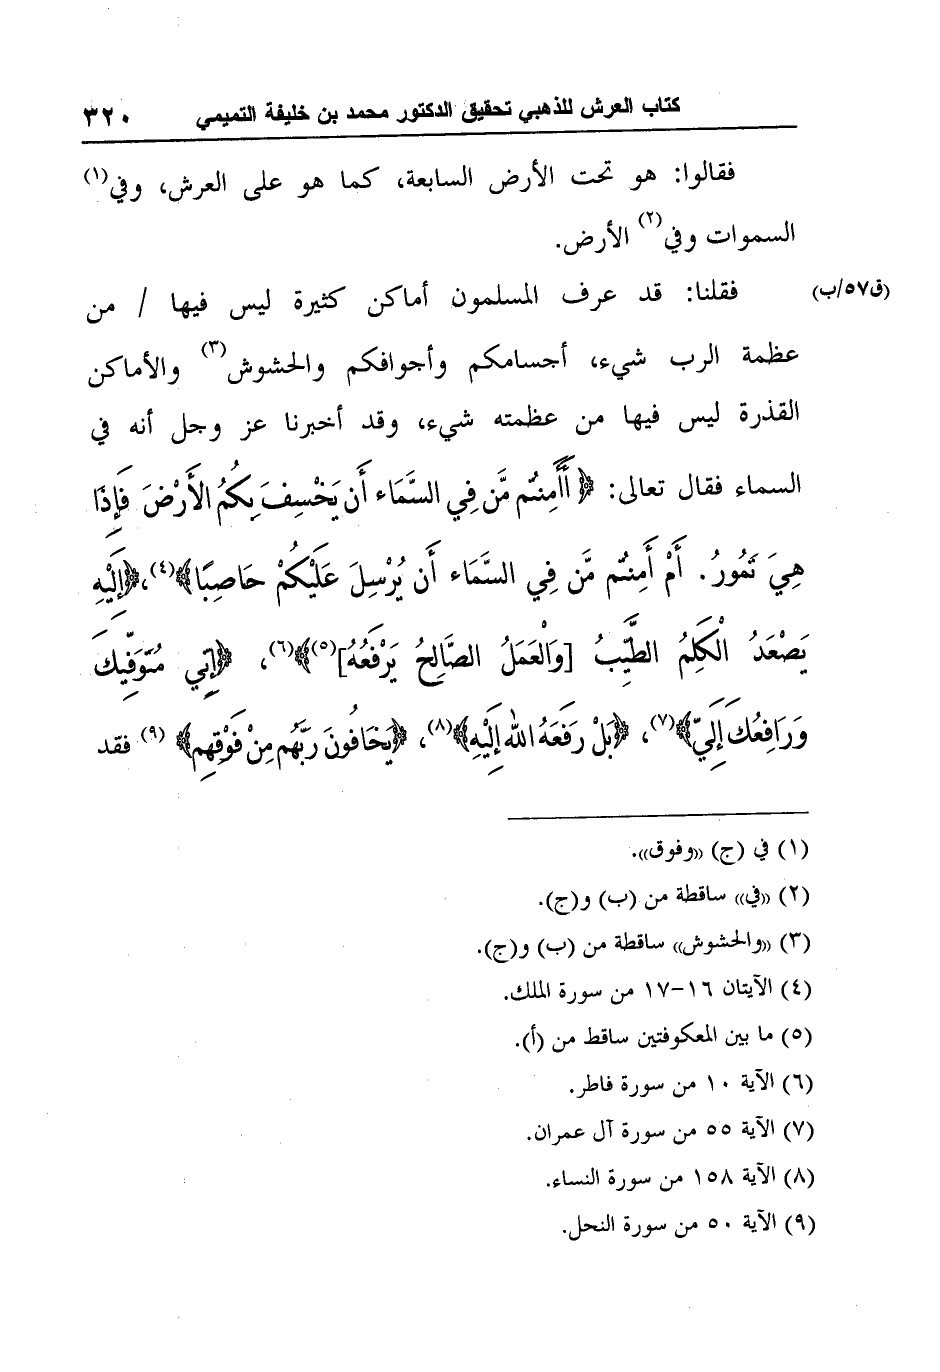 كتاب العرش للذهبي تحقيق الدكتور محمد بن خليفة التميمي ٣٢٠
فقالوا: هو تحت الأرض السابعة، كما هو على العرش، وفي(١)
السموات وفي(٢) الأرض.
(ق٥٧/ب) فقلنا: قد عرف المسلمون أماكن كثيرة ليس فيها / من
عظمة الرب شيء، أجسامكم وأجوافكم والحشوش(٣) والأماكن
القذرة ليس فيها من عظمته شيء، وقد أخبرنا عز وجل أنه في
السماء فقال تعالى: ﴿أَأَمِنتُم مَّن فِي السَّمَاء أَن يَخْسِفَ بِكُمُ الأَرْضَ فَإِذَا
هِيَ تَمُورُ. أَمْ أَمِنتُم مَّن فِي السَّمَاء أَن يُرْسِلَ عَلَيْكُمْ حَاصِبًا﴾(٤)، ﴿إِلَيْهِ
يَصْعَدُ الْكَلِمُ الطَّيِّبُ [وَالْعَمَلُ الصَّالِحُ يَرْفَعُهُ](٥)﴾(٦)، ﴿إِنِّي مُتَوَفِّيكَ
وَرَافِعُكَ إِلَيَّ﴾(٧)، ﴿بَلْ رَفَعَهُ اللهُ إِلَيْهِ﴾(٨)، ﴿يَخَافُونَ رَبَّهُم مِنْ فَوْقِهِم﴾(٩) فقد
(١) في (ج) «وفوق».
(٢) «في» ساقطة من (ب) و(ج).
(٣) «والحشوش» ساقطة من (ب) و(ج).
(٤) الآيتان ١٦-١٧ من سورة الملك.
(٥) ما بين المعكوفتين ساقط من (أ).
(٦) الآية ١٠ من سورة فاطر.
(٧) الآية ٥٥ من سورة آل عمران.
(٨) الآية ١٥٨ من سورة النساء.
(٩) الآية ٥٠ من سورة النحل.